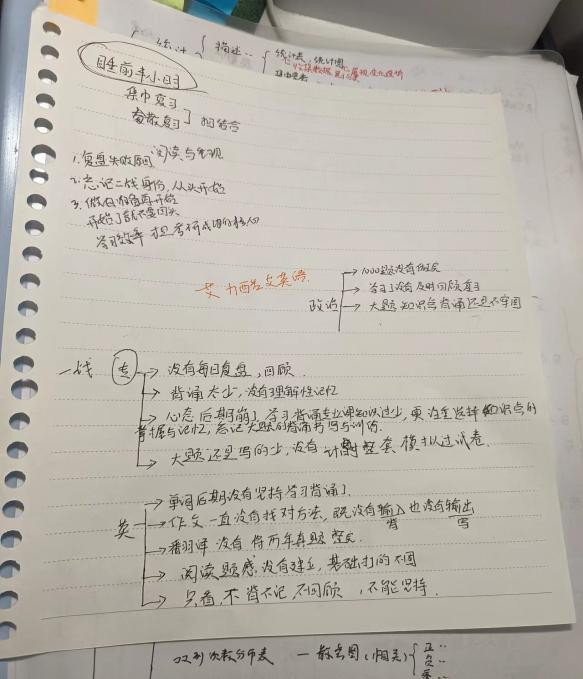 统计 描述.. 统计表，统计图
睡前半小时
集中复习
分散复习 相结合
阅读与出现
1.复盘失败原因
2.忘记二战身份，从头开始
3.做好准备再开始
开始了就不要回头
学习效率才是考研成功的核心
艾力酷艾英语
政治
1000题没有做完
学习了没有及时回顾复习
大题知识点背诵还是不牢固
一战 专
没有每日复盘，回顾
背诵太少，没有理解性记忆
心态后期崩了，学习背诵专业课知识过少，更注重选择知识点的
掌握与记忆，忘记大题的背诵书写与训练.
大题还是写的少，没有计时整套模拟过试卷.
英
单词后期没有坚持学习背诵了.
作文一直没有找对方法，既没有输入也没有输出
背 写
翻译没有将历年真题整完
阅读题感没有建立，基础打的不固
只看，不背不记，不回顾，不能坚持.
双列次数分布表 — 散点图(相关) 正.. 负..